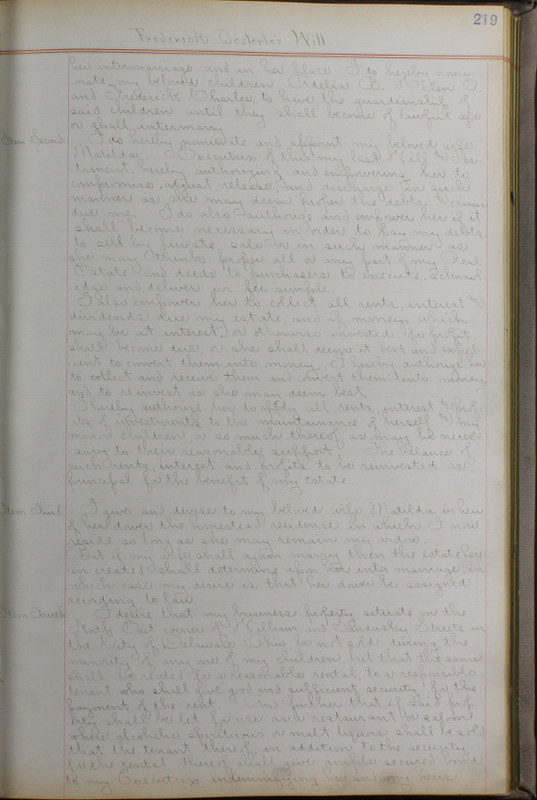 219
Frederick Oesterle's Will
her intermarriage and in her place I do hereby nomi-
nate my beloved children B.
and Frederick Charles to have the guardianship of
said children until they shall become of lawful age
or shall intermarry
Item Second I do hereby nominate and appoint my beloved wife
Matilda Executrix of this my last Will & Tes-
tament, hereby authorizing and empowering her to
compromise, adjust, release, and discharge in such
manner as she may deem proper the debts & claims
due me. I do also authorize and empower her if it
shall become necessary in order to pay my debts
to sell by private sale or in such manner as
she may think proper all or any part of my Real
Estate and deeds to purchasers to execute, acknowl-
edge and deliver in fee simple
I also empower her to collect all rents, interest &
dividends due my estate, and if moneys which
may be at interest or otherwise invested for profit
shall become due, or she shall deem it best and expedi-
ent to convert them into money, I hereby authorize her
to collect and receive them and convert them into money
and to reinvest as she may deem best.
I hereby authorize her to apply all rents, interest & prof-
its of investments to the maintainance of herself & my
minor children, or so much thereof as may be neces-
sary to their reasonable support. The balance of
such rents, interest and profits to be reinvested as
principal for the benefit of my estate.
Item Third I give and devise to my beloved wife Matilda in lieu
of her dower the homestead residence in which I now
reside so long as she may remain my widow.
But if my wife shall again marry then the estate here-
in created shall determine upon her inter marriage, in
which case my desire is that her dower be assigned
according to law
Item Fourth I desire that my business property situate on the
North East corner of William and Sandusky Streets in
the City of Delaware Ohio be not sold during the
minority of any one of my children, but that the same
shall be rented for a reasonable rental to a responsible
tenant who shall give good and sufficient security for the
payment of the rent. And further that if said prop-
erty shall be let for use as a restaurant or saloon
where alcoholic spirituous or malt liquors shall be sold
that the tenant thereof in addition to the security
for the rental thereof shall give ample secured bond
to my Executrix indemnifying her and my heirs